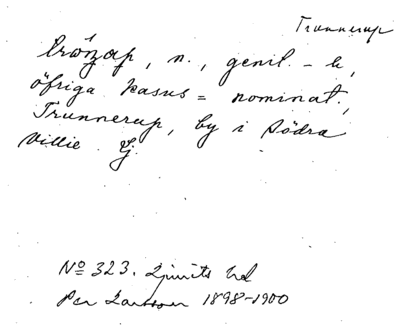 Trunnerup
n., genit. -s,
öfriga kasus = nominat.,
Trunnerup, by i Södra
Villie Lj.
No 323. Ljunits hd
Per Larsson 1898-1900